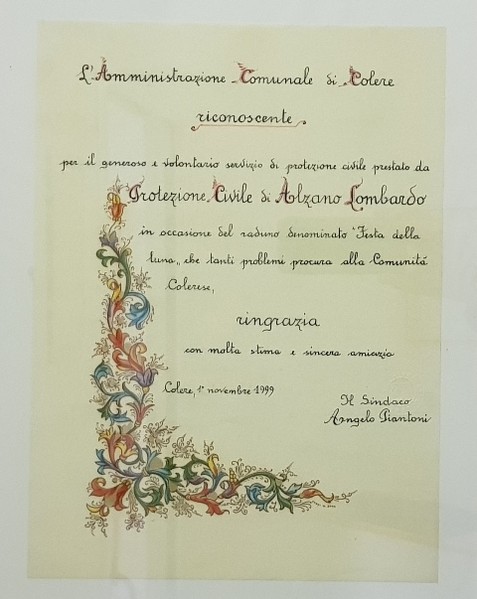 L'Amministrazione Comunale di Colere
riconoscente
per il generoso e volontario servizio di protezione civile prestato da
Protezione Civile di Alzano Lombardo
in occasione del raduno denominato "Festa della
luna„ che tanti problemi procura alla Comunità
Colerese,
ringrazia
con molta stima e sincera amicizia
Colere, 1° novembre 1999
Il Sindaco
Angelo Piantoni